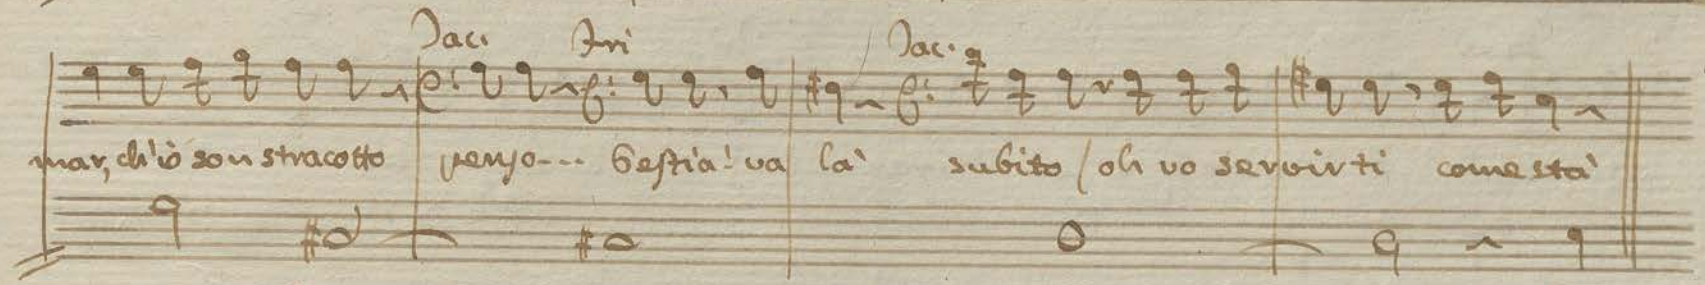 Jac. Fri Jac.
mar, ch'io son stracotto penso--- bestia! va là subito / oh vo servirti come stà